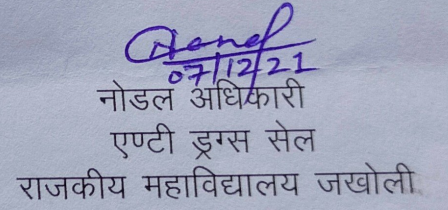 07/12/21
नोडल अधिकारी
एण्टी ड्रग्स सेल
राजकीय महाविद्यालय जखोली